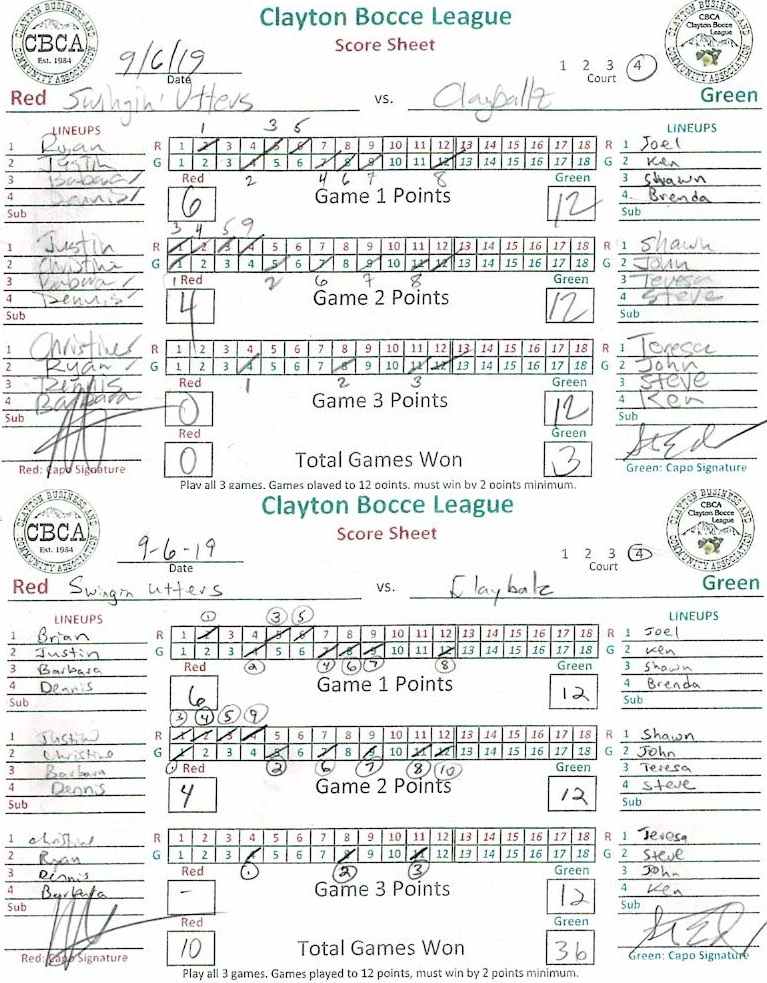 CLAYTON BUSINESS AND COMMUNITY ASSOCIATION
CBCA
Est. 1984
Clayton Bocce League
Score Sheet
CBCA
Clayton Bocce
League
9/6/19
Date
1 2 3 4
Court
Red Swingin' Utters vs. Clayballz Green
LINEUPS
1 Ryan
2 Justin
3 Barbara
4 Dennis
Sub
1 3 5
R 1 2 3 4 5 6 7 8 9 10 11 12 13 14 15 16 17 18 R
G 1 2 3 4 5 6 7 8 9 10 11 12 13 14 15 16 17 18 G
2 4 6 7 8
Red Green
6 Game 1 Points 12
LINEUPS
1 Joel
2 Ken
3 Shawn
4 Brenda
Sub
1 Justin
2 Christine
3 Barbara
4 Dennis
Sub
3 4 5 9
R 1 2 3 4 5 6 7 8 9 10 11 12 13 14 15 16 17 18 R
G 1 2 3 4 5 6 7 8 9 10 11 12 13 14 15 16 17 18 G
1 2 6 7 8
Red Green
4 Game 2 Points 12
1 Shawn
2 John
3 Teresa
4 Steve
Sub
1 Christine
2 Ryan
3 Dennis
4 Barbara
Sub
R 1 2 3 4 5 6 7 8 9 10 11 12 13 14 15 16 17 18 R
G 1 2 3 4 5 6 7 8 9 10 11 12 13 14 15 16 17 18 G
1 2 3
Red Green
0 Game 3 Points 12
1 Teresa
2 John
3 Steve
4 Ken
Sub
Red Green
0 Total Games Won 3
Red: Capo Signature
Green: Capo Signature
Play all 3 games. Games played to 12 points, must win by 2 points minimum.
CLAYTON BUSINESS AND COMMUNITY ASSOCIATION
CBCA
Est. 1984
Clayton Bocce League
Score Sheet
CBCA
Clayton Bocce
League
9-6-19
Date
1 2 3 4
Court
Red Swingin Utters vs. Claybalz Green
LINEUPS
1 Brian
2 Justin
3 Barbara
4 Dennis
Sub
1 3 5
R 1 2 3 4 5 6 7 8 9 10 11 12 13 14 15 16 17 18 R
G 1 2 3 4 5 6 7 8 9 10 11 12 13 14 15 16 17 18 G
2 4 6 7 8
Red Green
6 Game 1 Points 12
LINEUPS
1 Joel
2 Ken
3 Shawn
4 Brenda
Sub
1 Justin
2 Christine
3 Barbara
4 Dennis
Sub
3 4 5 9
R 1 2 3 4 5 6 7 8 9 10 11 12 13 14 15 16 17 18 R
G 1 2 3 4 5 6 7 8 9 10 11 12 13 14 15 16 17 18 G
1 2 6 7 8 10
Red Green
4 Game 2 Points 12
1 Shawn
2 John
3 Teresa
4 Steve
Sub
1 Christine
2 Ryan
3 Dennis
4 Barbara
Sub
R 1 2 3 4 5 6 7 8 9 10 11 12 13 14 15 16 17 18 R
G 1 2 3 4 5 6 7 8 9 10 11 12 13 14 15 16 17 18 G
1 2 3
Red Green
- Game 3 Points 12
1 Teresa
2 Steve
3 John
4 Ken
Sub
Red Green
10 Total Games Won 36
Red: Capo Signature
Green: Capo Signature
Play all 3 games. Games played to 12 points, must win by 2 points minimum.